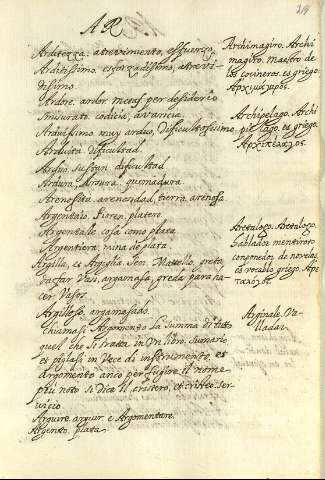 AR
Arditezza: atrevimiento, esfuerzo,
Arditissimo. esforzadissimo, atrevi-
dissimo.
Ardore, ardor metaf per desiderio
smisurato codicia, avaricia.
Arduissimo muy arduo, Dificultosissimo.
Arduità Dificultad.
Arduo, sustan. dificultad
Ardura, Arsura, quemadura
Arenosità, arenosidad, tierra, arenosa
Argentaio. Fioren, platero.
Argentale cosa como plata
Argentiera, mina de plata
Argilla, es Argilla Sen. Mattello, greta
da far Vasi, argamasa, greda para ha-
cer Vasos.
Argilloso, argamasado.
Chiamasi Argomento la Summa di tutto
quel che si tratta in Un libro, sumario,
et pigliasi in Vece di instrumento, et
Argomento anco per fugire il nome
piu noto si dice il cristero, et critteo ser-
vicio
Arguire, arguir. e Argomentare.
Argento, plata
Archimagiro. Archi
magiro, maestro de
los cocineros es griego
Αρχιμάγιρος.
Archipelago. Archi
pielago. es griego.
Αρχιπέλαγος.
Aretalogo. Aretalogo,
hablador mentiroso
componedor de novelas,
es vocablo griego. Αρε
ταλόγος.
Arginale. Va-
lladar